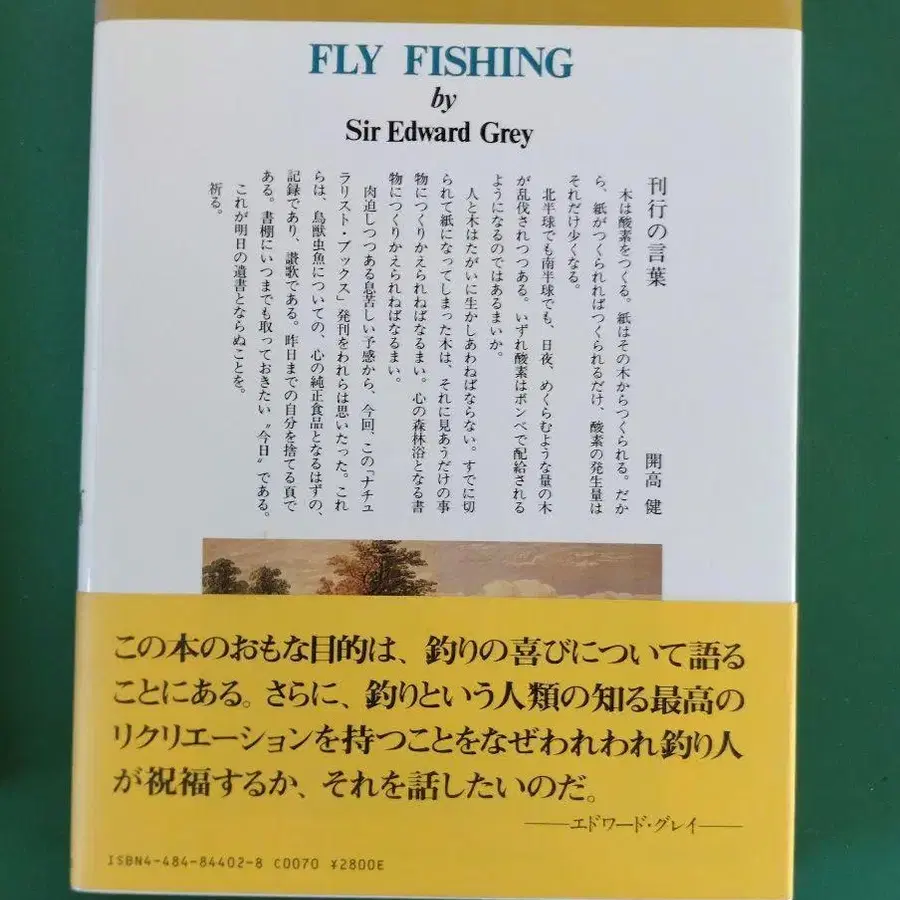 FLY FISHING
by
Sir Edward Grey
刊行の言葉
開高 健
木は酸素をつくる。紙はその木からつくられる。だか
ら、紙がつくられればつくられるだけ、酸素の発生量は
それだけ少くなる。
北半球でも南半球でも、日夜、めくらむような量の木
が乱伐されつつある。いずれ酸素はボンベで配給される
ようになるのではあるまいか。
人と木はたがいに生かしあわねばならない。すでに切
られて紙になってしまった木は、それに見あうだけの事
物につくりかえられねばなるまい。心の森林浴となる書
物につくりかえられねばなるまい。
肉迫しつつある息苦しい予感から、今回、この「ナチュ
ラリスト・ブックス」発刊をわれらは思いたった。これ
らは、鳥獣虫魚についての、心の純正食品となるはずの、
記録であり、讃歌である。昨日までの自分を捨てる頁で
ある。書棚にいつまでも取っておきたい〝今日〟である。
これが明日の遺書とならぬことを。
祈る。
この本のおもな目的は、釣りの喜びについて語る
ことにある。さらに、釣りという人類の知る最高の
リクリエーションを持つことをなぜわれわれ釣り人
が祝福するか、それを話したいのだ。
——エドワード・グレイ——
ISBN4-484-84402-8 C0070 ¥2800E